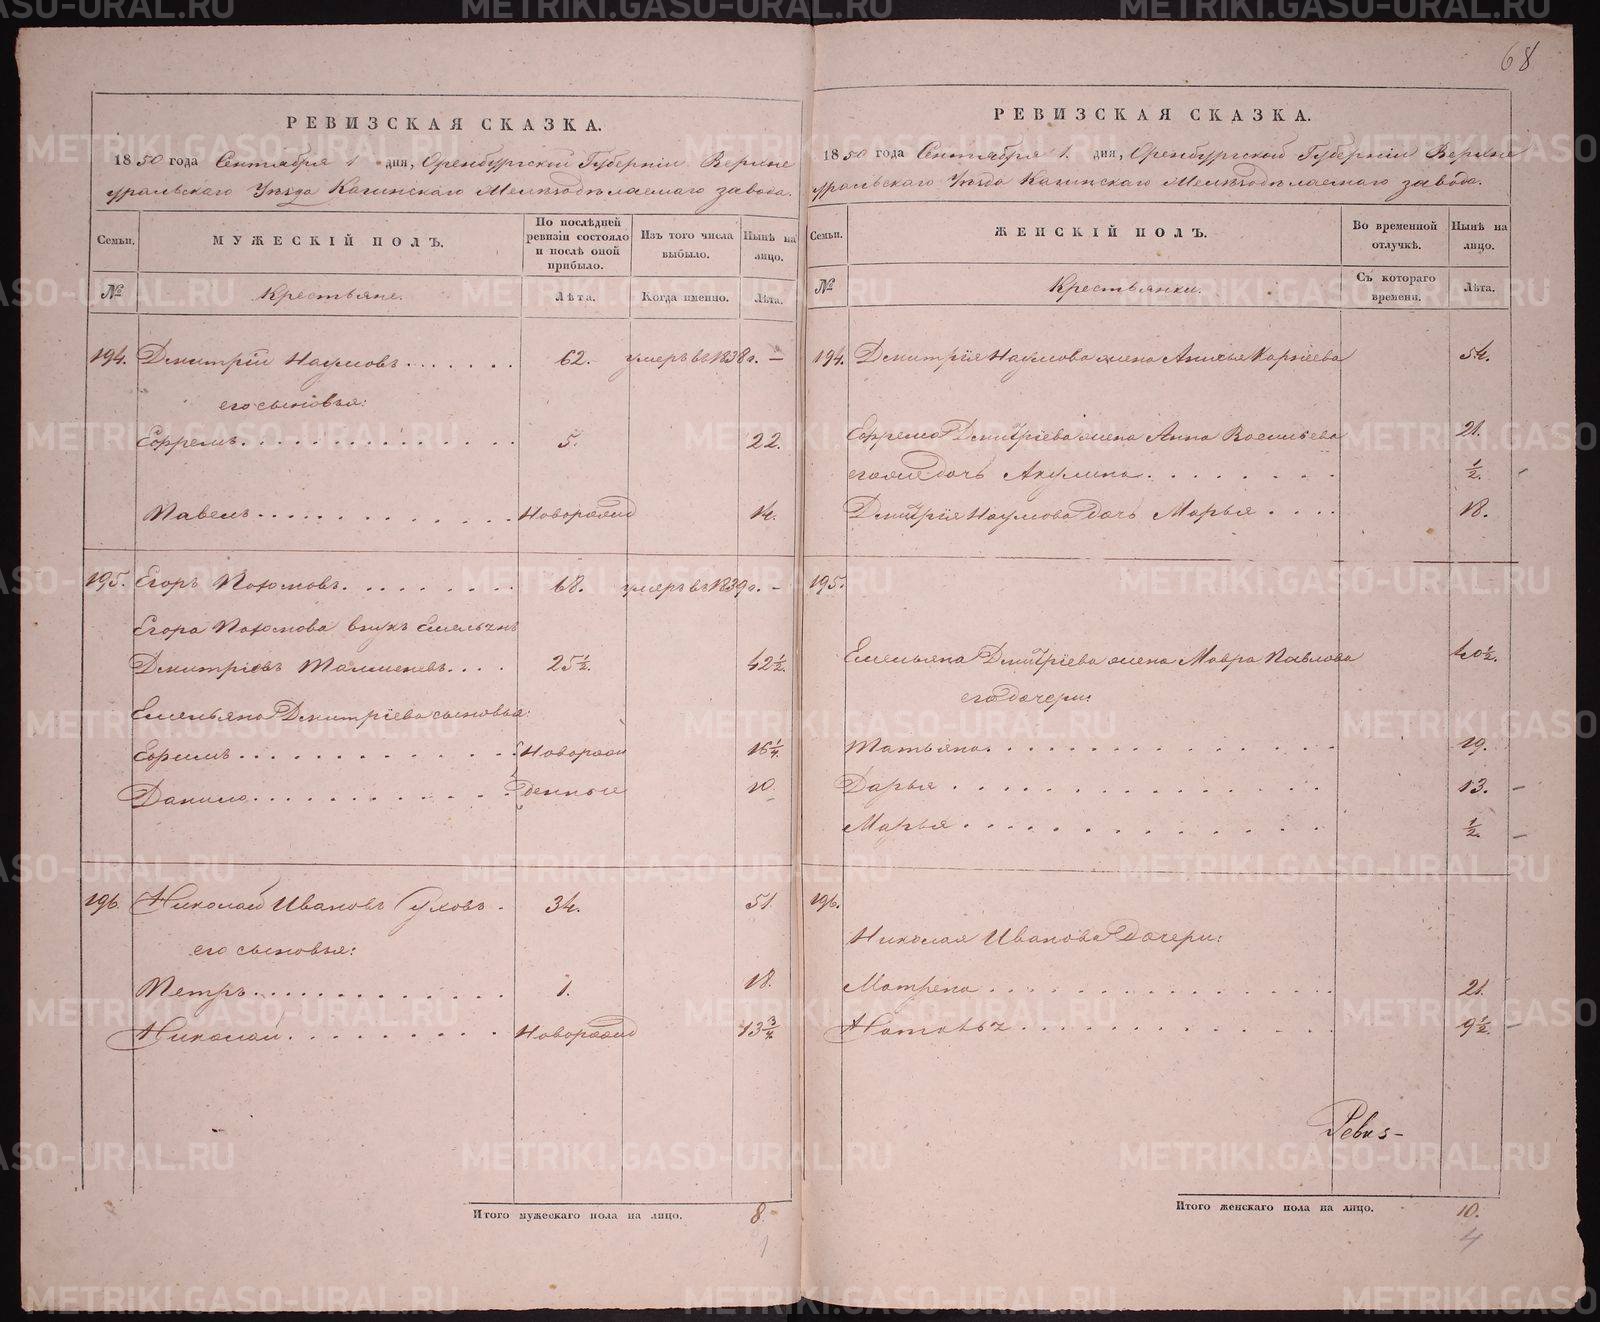 68
РЕВИЗСКАЯ СКАЗКА.
1850 года Сентября 1 дня, Оренбургской Губерніи Верхне
уральскаго Уѣзда Кагинскаго Желѣзодѣлаемаго завода.
Семьи. МУЖЕСКІЙ ПОЛЪ. По послѣдней ревизіи состояло и послѣ оной прибыло. Изъ того числа выбыло. Нынѣ на лицо.
№ Крестьяне. Лѣта. Когда именно. Лѣта.
194. Дмитрій Наумовъ....... 62. умеръ въ 1838 г. —
его сыновья:
Ефремъ............. 5. 22.
Павелъ............. Новорожд 14.
195. Егоръ Пахомовъ........ 68. умеръ въ 1839 г. —
Егора Пахомова внукъ Емельянъ
Дмитріевъ .... 25½. 42½.
Емельяна Дмитріева сыновья:
Ефимъ............. Новорож 16¼.
Данило............. денные 10.
196. Николай Ивановъ . 34. 51.
его сыновья:
Петръ............. 1. 18.
Николай.......... Новорожд 13¾
Итого мужескаго пола на лицо. 8.
1
РЕВИЗСКАЯ СКАЗКА.
1850 года Сентября 1. дня, Оренбургской Губерніи Верхне
уральскаго Уѣзда Кагинскаго Желѣзодѣлаемаго завода.
Семьи. ЖЕНСКІЙ ПОЛЪ. Во временной отлучкѣ. Нынѣ на лицо.
№ Крестьянки. Съ котораго времени. Лѣта.
194. Дмитрія Наумова жена Анисья Карпеева 54.
Ефрема Дмитріева жена Анна Васильева 21.
его же дочь Акулина........ ½.
Дмитрія Наумова дочь Марья.... 18.
195.
Емельяна Дмитріева жена Мавра Павлова 40½.
его дочери:
Татьяна............... 19.
Дарья............... 13.
Марья............. ½.
196.
Николая Иванова дочери:
Матрена.............. 21.
Наталья............. 9½.
Ревиз-
Итого женскаго пола на лицо. 10.
4
METRIKI.GASO-URAL.RU